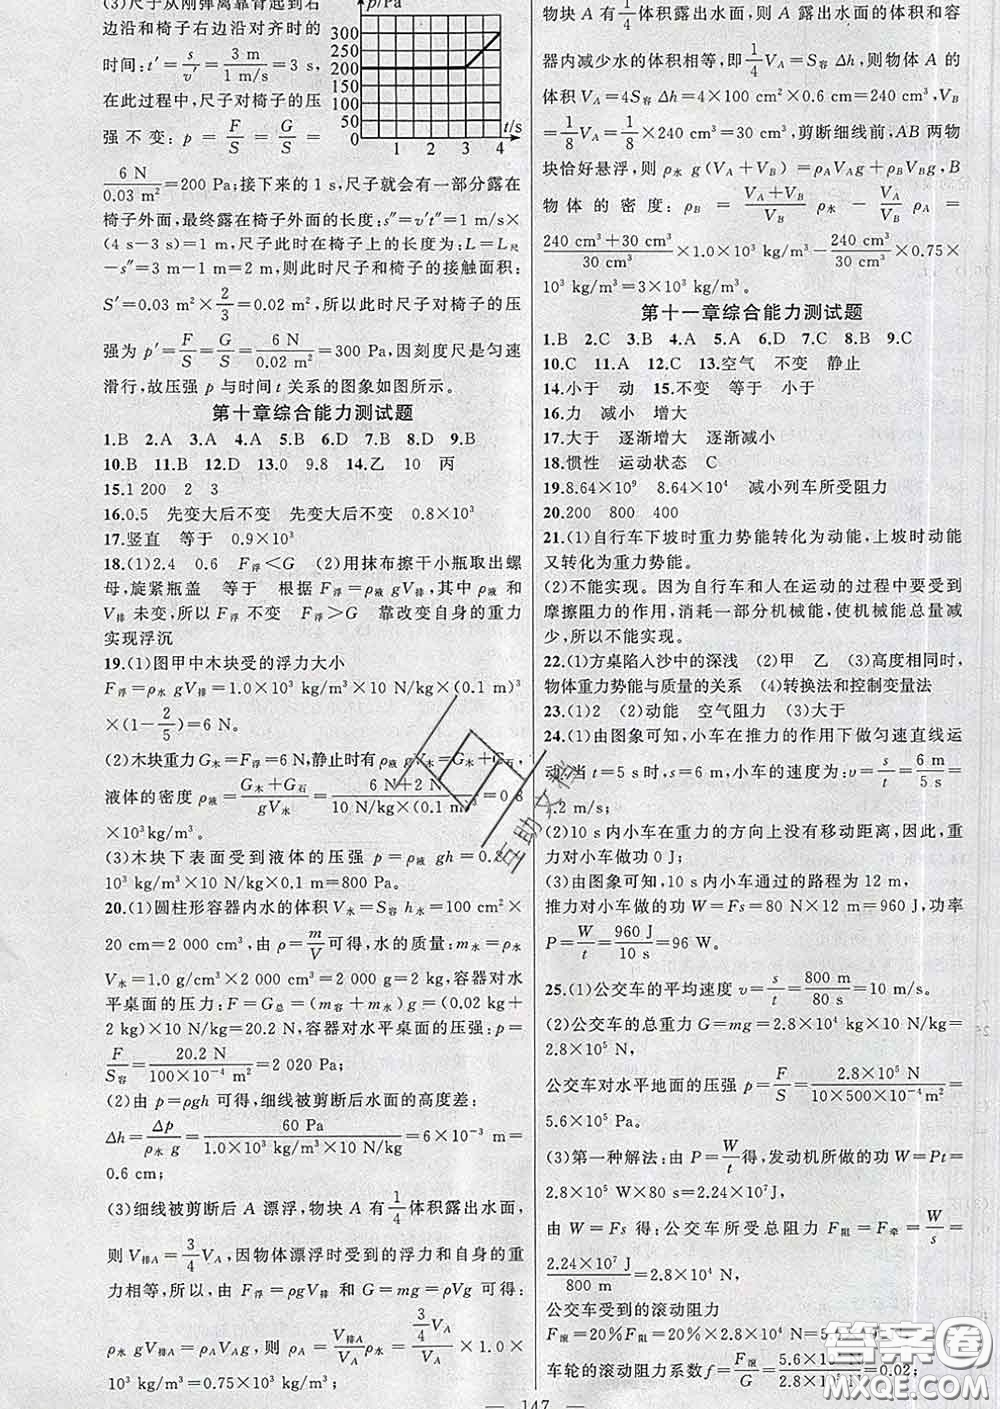 (3)尺子从刚弹离靠背起到右
边沿和椅子右边沿对齐时的
时间:t′=s/v′=3 m/1 m/s=3 s,
在此过程中,尺子对椅子的压
强不变:p=F/S=G/S=
p/Pa
300
250
200
150
100
50
0
1 2 3 4
t/s
6 N/0.03 m²=200 Pa;接下来的1 s,尺子就会有一部分露在
椅子外面,最终露在椅子外面的长度:s″=v′t″=1 m/s×
(4 s-3 s)=1 m,尺子此时在椅子上的长度为:L=L尺
-s″=3 m-1 m=2 m,则此时尺子和椅子的接触面积:
S′=0.03 m²×2/3=0.02 m²,所以此时尺子对椅子的压
强为p′=F/S=G/S=6 N/0.02 m²=300 Pa,因刻度尺是匀速
滑行,故压强p与时间t关系的图象如图所示。
第十章综合能力测试题
1.B 2.A 3.A 4.A 5.B 6.D 7.B 8.D 9.B
10.B 11.B 12.D 13.0 9.8 14.乙 10 丙
15.1 200 2 3
16.0.5 先变大后不变 先变大后不变 0.8×10³
17.竖直 等于 0.9×10³
18.(1)2.4 0.6 F浮<G (2)用抹布擦干小瓶取出螺
母,旋紧瓶盖 等于 根据F浮=ρ液gV排,其中ρ液和
V排未变,所以F浮不变 F浮>G 靠改变自身的重力
实现浮沉
19.(1)图甲中木块受的浮力大小
F浮=ρ水gV排=1.0×10³ kg/m³×10 N/kg×(0.1 m)³
×(1-2/5)=6 N。
(2)木块重力G木=F浮=6 N,静止时有ρ液gV木=G木+G石,
液体的密度ρ液=G木+G石/gV木=6 N+2 N/10 N/kg×(0.1 m)³=0.8
×10³kg/m³。
(3)木块下表面受到液体的压强p=ρ液gh=0.8×
10³ kg/m³×10 N/kg×0.1 m=800 Pa。
20.(1)圆柱形容器内水的体积V水=S容h水=100 cm²×
20 cm=2 000 cm³,由ρ=m/V可得,水的质量:m水=ρ水
V水=1.0 g/cm³×2 000 cm³=2 000 g=2 kg,容器对水
平桌面的压力:F=G总=(m容+m水)g=(0.02 kg+
2 kg)×10 N/kg=20.2 N,容器对水平桌面的压强:p=
F/S容=20.2 N/100×10⁻⁴ m²=2 020 Pa;
(2)由p=ρgh可得,细线被剪断后水面的高度差:
Δh=Δp/ρ水g=60 Pa/1.0×10³ kg/m³×10 N/kg=6×10⁻³ m=
0.6 cm;
(3)细线被剪断后A漂浮,物块A有1/4体积露出水面,
则V排A=3/4VA,因物体漂浮时受到的浮力和自身的重
力相等,所以,由F浮=ρgV排和G=mg=ρVg可得:
ρ水gV排A=ρAVAg,则ρA=V排A/VAρ水=3/4VA/VA×1.0×
10³ kg/m³=0.75×10³ kg/m³;
物块A有1/4体积露出水面,则A露出水面的体积和容
器内减少水的体积相等,即1/4VA=S容Δh,则物体A的
体积VA=4S容Δh=4×100 cm²×0.6 cm=240 cm³,VB
=1/8VA=1/8×240 cm³=30 cm³,剪断细线前,AB两物
块恰好悬浮,则ρ水g(VA+VB)=ρAVAg+ρBVBg,B
物体的密度:ρB=VA+VB/VBρ水-VA/VBρA=
240 cm³+30 cm³/30 cm³×1.0×10³ kg/m³-240 cm³/30 cm³×0.75×
10³ kg/m³=3×10³ kg/m³。
第十一章综合能力测试题
1.B 2.C 3.B 4.A 5.A 6.D 7.C 8.B 9.C
10.C 11.A 12.C 13.空气 不变 静止
14.小于 动 15.不变 等于 小于
16.力 减小 增大
17.大于 逐渐增大 逐渐减小
18.惯性 运动状态 C
19.8.64×10⁹ 8.64×10⁴ 减小列车所受阻力
20.200 800 400
21.(1)自行车下坡时重力势能转化为动能,上坡时动能
又转化为重力势能。
(2)不能实现。因为自行车和人在运动的过程中要受到
摩擦阻力的作用,消耗一部分机械能,使机械能总量减
少,所以不能实现。
22.(1)方桌陷入沙中的深浅 (2)甲 乙 (3)高度相同时,
物体重力势能与质量的关系 (4)转换法和控制变量法
23.(1)2 (2)动能 空气阻力 (3)大于
24.(1)由图象可知,小车在推力的作用下做匀速直线运
动,当t=5 s时,s=6 m,小车的速度为:v=s/t=6 m/5 s=
1.2 m/s;
(2)10 s内小车在重力的方向上没有移动距离,因此,重
力对小车做功0 J;
(3)由图象可知,10 s内小车通过的路程为12 m,
推力对小车做的功W=Fs=80 N×12 m=960 J,功率
P=W/t=960 J/10 s=96 W。
25.(1)公交车的平均速度v=s/t=800 m/80 s=10 m/s。
(2)公交车的总重力G=mg=2.8×10⁴ kg×10 N/kg=
2.8×10⁵ N,
公交车对水平地面的压强p=F/S=2.8×10⁵ N/10×500×10⁻⁴m²=
5.6×10⁵ Pa。
(3)第一种解法:由P=W/t得,发动机所做的功W=Pt=
2.8×10⁵ W×80 s=2.24×10⁷J,
由W=Fs得:公交车所受总阻力F阻=F牵=W/s=
2.24×10⁷ J/800 m=2.8×10⁴ N,
公交车受到的滚动阻力
F滚=20%F阻=20%×2.8×10⁴ N=5.6×10³ N
车轮的滚动阻力系数f=F滚/G=5.6×10³ N/2.8×10⁵ N=0.02;
— 147 —
互助文档
答案圈
MXQE.COM